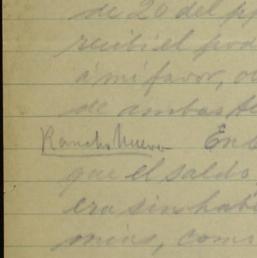 de 20 del pp
recibi el pod
á mi favor, o
de ambas
Rancho Nuevo En
que el saldo
era sin hab
mias, com